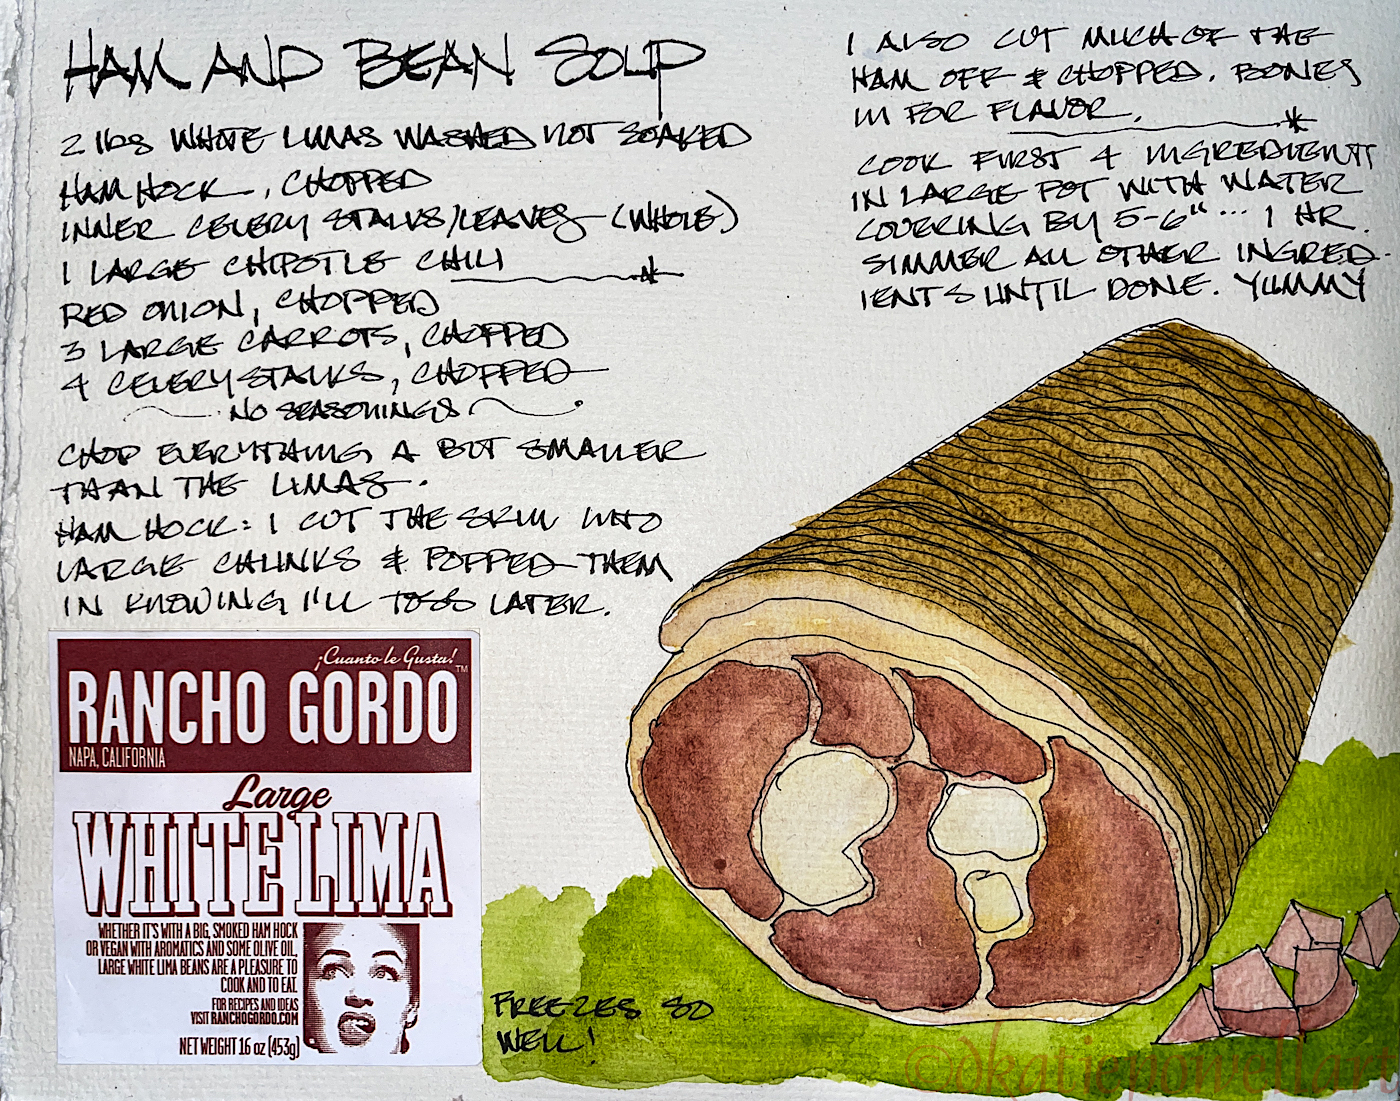 HAM AND BEAN SOUP
2 lbs WHITE LIMAS WASHED NOT SOAKED
HAM HOCK, CHOPPED
INNER CELERY STALKS/LEAVES (WHOLE)
1 LARGE CHIPOTLE CHILI
RED ONION, CHOPPED
3 LARGE CARROTS, CHOPPED
4 CELERY STALKS, CHOPPED
NO SEASONINGS
CHOP EVERYTHING A BIT SMALLER
THAN THE LIMAS.
HAM HOCK: I CUT THE SKIN INTO
LARGE CHUNKS & POPPED THEM
IN KNOWING I'LL TOSS LATER.
I ALSO CUT MUCH OF THE
HAM OFF & CHOPPED. BONES
IN FOR FLAVOR.
COOK FIRST 4 INGREDIENTS
IN LARGE POT WITH WATER
COVERING BY 5-6" ... 1 HR.
SIMMER ALL OTHER INGRED-
IENTS UNTIL DONE. YUMMY
¡Cuanto le Gusta!
RANCHO GORDO™
NAPA, CALIFORNIA
Large
WHITE LIMA
WHETHER IT'S WITH A BIG, SMOKED HAM HOCK
OR VEGAN WITH AROMATICS AND SOME OLIVE OIL,
LARGE WHITE LIMA BEANS ARE A PLEASURE TO
COOK AND TO EAT.
FOR RECIPES AND IDEAS
VISIT RANCHOGORDO.COM
NET WEIGHT 16 oz (453g)
FREEZES SO
WELL!
©dkatiepowellart